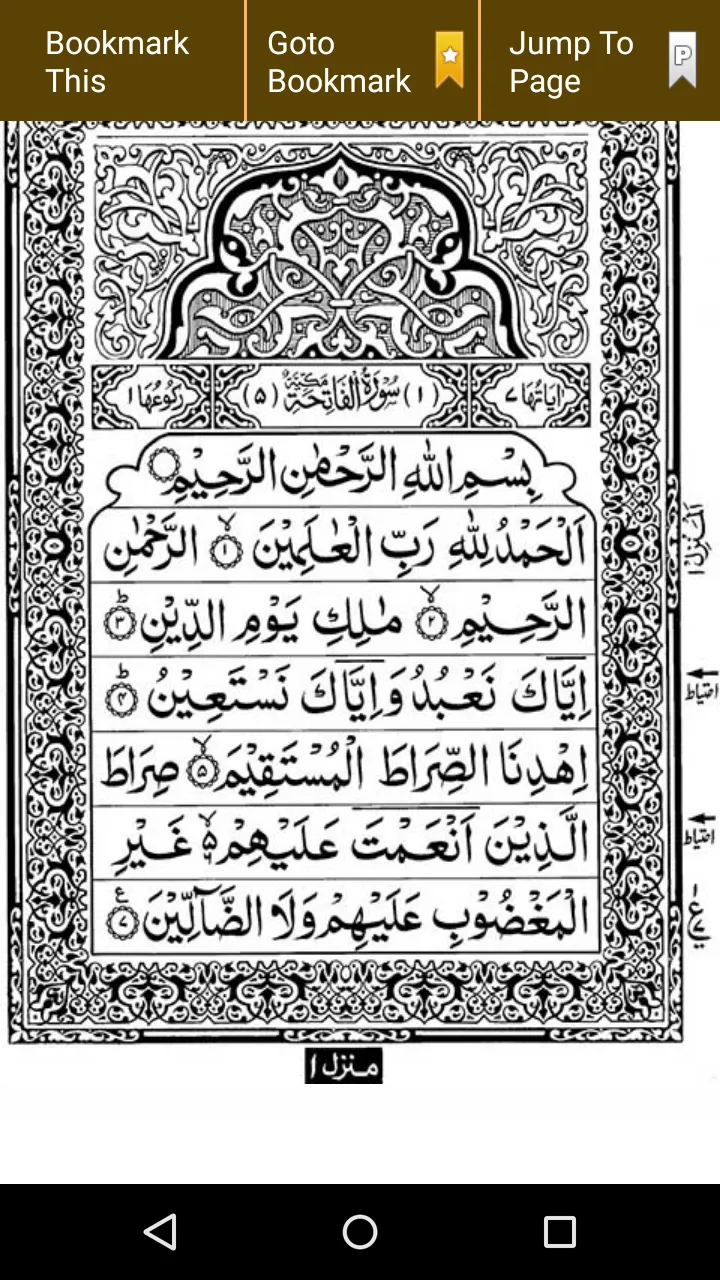 Bookmark This
Goto Bookmark
Jump To Page
P
اٰيَاتُهَا ٧
(١) سُوْرَةُ الْفَاتِحَةِ مَكِّيَّةٌ (٥)
رُكُوْعُهَا ١
بِسْمِ اللهِ الرَّحْمٰنِ الرَّحِيْمِ
اَلْحَمْدُ لِلّٰهِ رَبِّ الْعٰلَمِيْنَ ۙ ١ الرَّحْمٰنِ
الرَّحِيْمِ ۙ ٢ مٰلِكِ يَوْمِ الدِّيْنِ ؕ ٣
اِيَّاكَ نَعْبُدُ وَاِيَّاكَ نَسْتَعِيْنُ ؕ ٤
اِهْدِنَا الصِّرَاطَ الْمُسْتَقِيْمَ ۙ ٥ صِرَاطَ
الَّذِيْنَ اَنْعَمْتَ عَلَيْهِمْ ۙ ٦ غَيْرِ
الْمَغْضُوْبِ عَلَيْهِمْ وَلَا الضَّآلِّيْنَ ع ٧
المنزل ١
احتياط
احتياط
ع
منزل ١